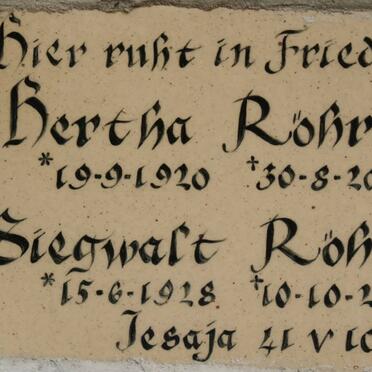 Hier ruht in Fried
Hertha Röhr
*19-9-1920 †30-8-20
Siegwalt Röh
*15-6-1928 †10-10-2
Jesaja 41 v 10